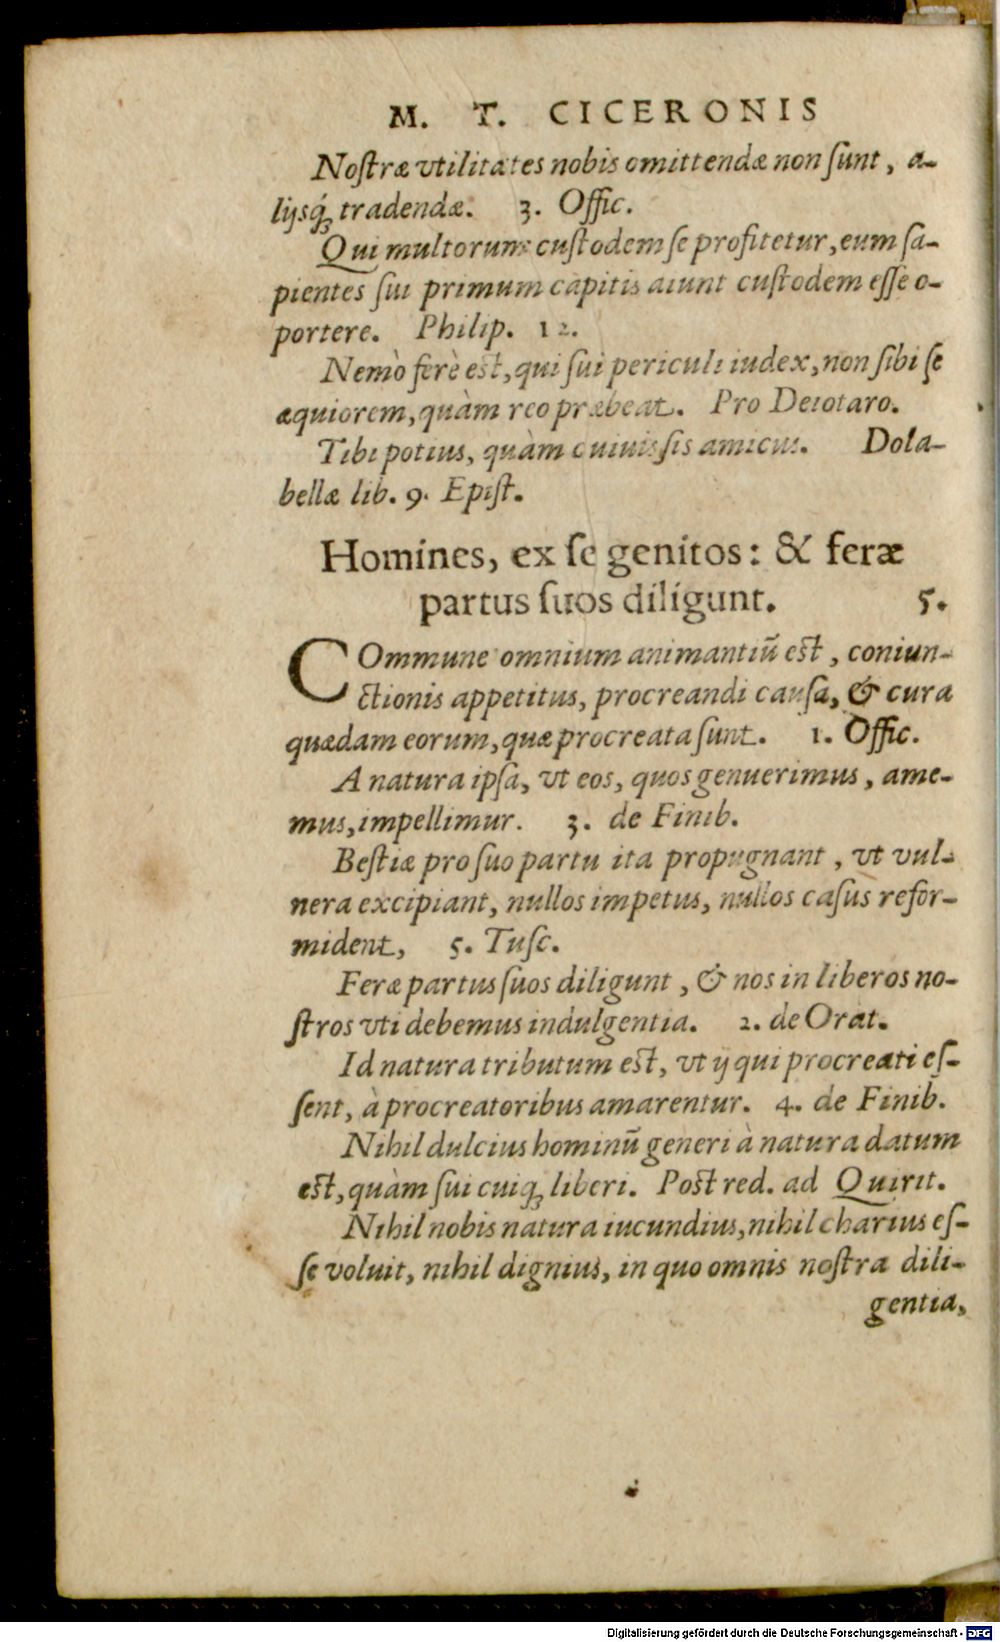 M. T. CICERONIS
Noſtræ vtilitates nobis omittendæ non ſunt, a-
lijsq́; tradendæ. 3. Offic.
Qui multorum cuſtodem ſe profitetur, eum ſa-
pientes ſui primum capitis aiunt cuſtodem eſſe o-
portere. Philip. 12.
Nemò ferè est, qui ſui periculi iudex, non ſibi ſe
æquiorem, quàm reo præbeat. Pro Deiotaro.
Tibi potius, quàm cuiuis ſis amicus. Dola-
bellæ lib. 9. Epiſt.
Homines, ex ſe genitos: & feræ
partus ſuos diligunt. 5.
COmmune omnium animantiũ est, coniun-
ctionis appetitus, procreandi cauſa, & cura
quædam eorum, quæ procreata ſunt. 1. Offic.
A natura ipſa, vt eos, quos genuerimus, ame-
mus, impellimur. 3. de Finib.
Beſtiæ pro ſuo partu ita propugnant, vt vul-
nera excipiant, nullos impetus, nullos caſus refor-
mident, 5. Tuſc.
Feræ partus ſuos diligunt, & nos in liberos no-
ſtros vti debemus indulgentia. 2. de Orat.
Id natura tributum est, vt ij qui procreati eſ-
ſent, à procreatoribus amarentur. 4. de Finib.
Nihil dulcius hominũ generi à natura datum
est, quàm ſui cuiq; liberi. Post red. ad Quirit.
Nihil nobis natura iucundius, nihil charius eſ-
ſe voluit, nihil dignius, in quo omnis noſtra dili-
gentia,
Digitalisierung gefördert durch die Deutsche Forschungsgemeinschaft - DFG